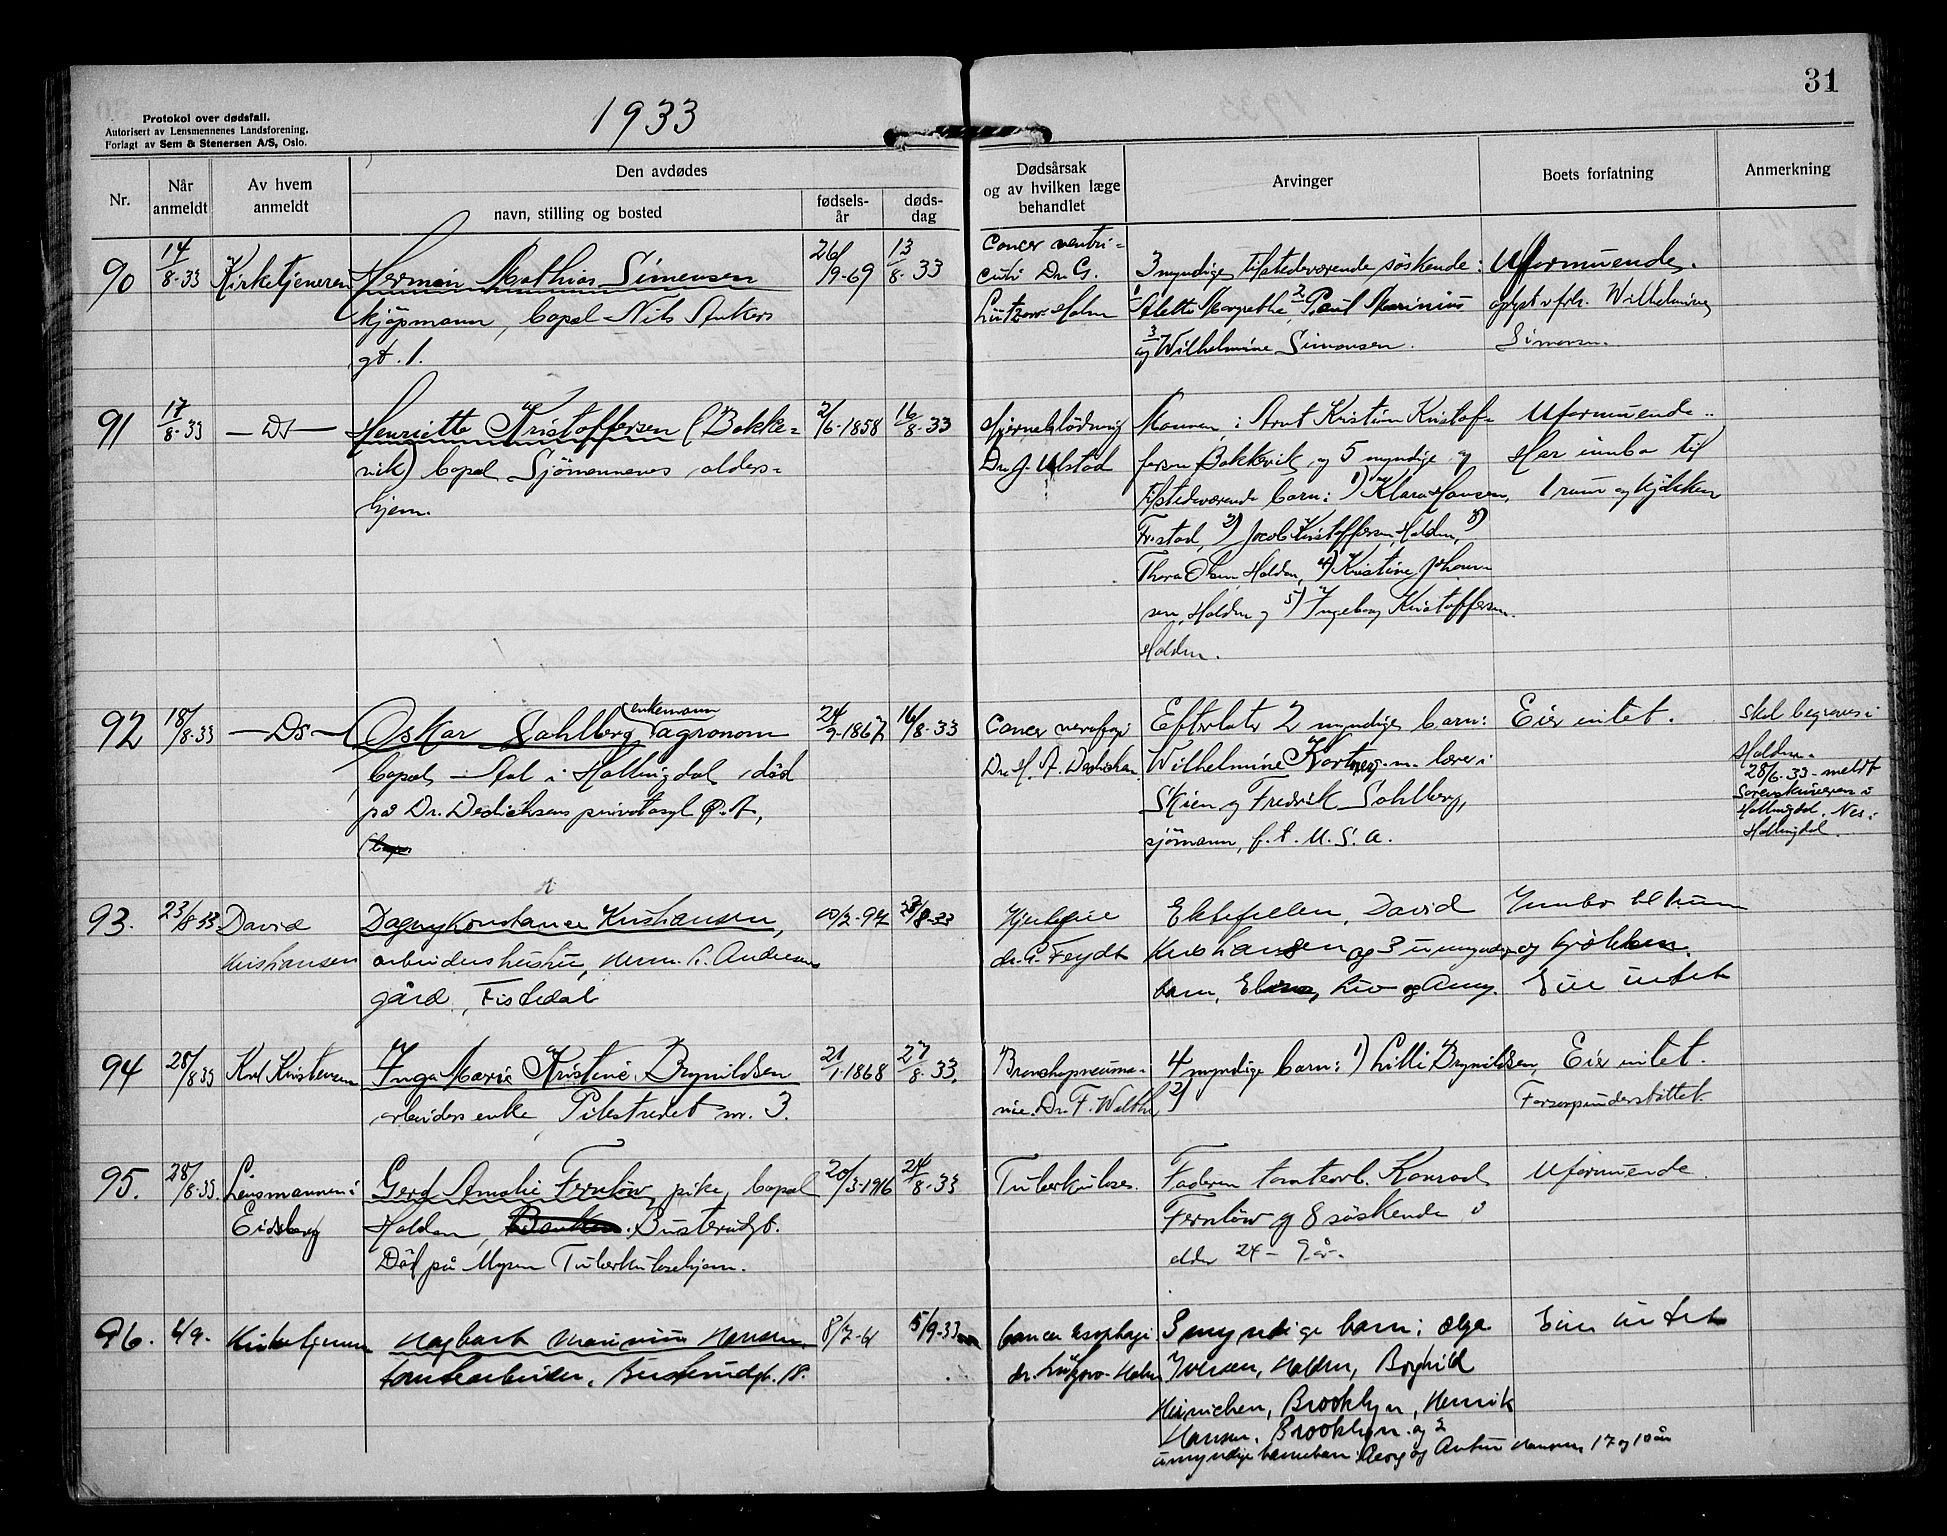 1933
31
Protokol over dødsfall.
Autorisert av Lensmennenes Landsforening.
Forlagt av Sem & Stenersen A/S, Oslo.
Nr.
Når anmeldt
Av hvem anmeldt
Den avdødes
navn, stilling og bosted
fødsels-år
døds-dag
Dødsårsak og av hvilken læge behandlet
Arvinger
Boets forfatning
Anmerkning
90
14/8-33
Kirketjeneren
Herman Mathias Simensen
kjøpmann, bopel Nils Ankers
gt. 1.
26/9-69
13/8-33
Cancer ventri=
culi Dr. G.
Lützow-Holm
3 myndige, tilstedeværende søskende:
1 Alette Margrethe, 2 Paul Marinius
og 3 Wilhelmine Simensen.
Uformuende,
oplyst v frk. Wilhelmine
Simensen.
91
17/8-33
— Ds —
Henriette Kristoffersen (Bakke=
vik) bopel Sjømennenes alders=
hjem.
2/6-1858
16/8-33
Hjerneblödning
Dr. J. Ulstad
Mannen: Arnt Kristian Kristof=
fersen Bakkevik, og 5 myndige og
tilstedeværende barn: 1) Klara Hansen,
Fr.stad, 2) Jacob Kristoffersen, Halden, 3)
Thora Olsen Halden, 4) Kristine Johan-
sen, Halden og 5) Ingeborg Kristoffersen.
Halden.
Uformuende..
Har innbo til
1 rum og kjökken
92
18/8-33
— Ds —
enkemann
Oskar Sahlberg agronom
bopel, - Aal i Hallingdal, död
på Dr. Dedichsens privatasyl Ø. A,
24/9-1867
16/8-33
Cancer
Dr. H. A. Dedichen.
Efterlater 2 myndige barn:
Wilhelmine lærer i
Skien og Fredrik Sahlberg,
sjömann, f. t. U. S. A.
Eier intet.
Skal begraves i
Halden.
28/8-33 - meldt
Sorenskriveren i
Hallingdal. Nes i
Hallingdal.
93.
23/8 33
David
Kristiansen
Dagny Konstance Kristiansen,
arbeidershustru, Herm. C. Andersens
gård, Tistedal
/2-97
/8-33
Hjertefeil
dr. C. Feydt
Ektefellen, David
Kristiansen og 3 umyndige
barn, Liv og Anny.
Innbo til 1 rum
og kjøkken.
Eier intet
94
28/8 33
Karl Kristensen
Inga Marie Kristine Brynildsen
arbeiders enke, Pilestredet nr. 3.
21/1-1868
27/8-33.
Bronchopneumo-
nie. Dr. F. Walthe
4 myndige barn: 1) Lilli Brynildsen,
2)
Eier intet.
Forsorgsunderstöttet.
95.
28/8-33
Lensmannen i
Eidsberg
Gerd Amalie Fernlöw, pike, bopel
Halden, Busterudgt.
Död på Mysen Tuberkulosehjem.
20/3-1916
24/8-33
Tuberkulose.
Faderen tomtearb. Konrad
Fernlöw og 8 söskende i
alder 24 - 9 år.
Uformuende
96.
6/9-
Kirketjeneren
Hagbart Marinius Hansen
tomtearbeider, Busterudgt. 18.
8/7-61
5/9-33
Cancer esophagi
dr. Lützow-Holm
3 myndige barn: Ælga
Iversen, Halden, Borghild
Heinichen, Brooklyn, Henrik
Hansen, Brooklyn. og 2
umyndige barnebarn: Georg og Arthur Hansen, 17 og 10 år
Eier intet